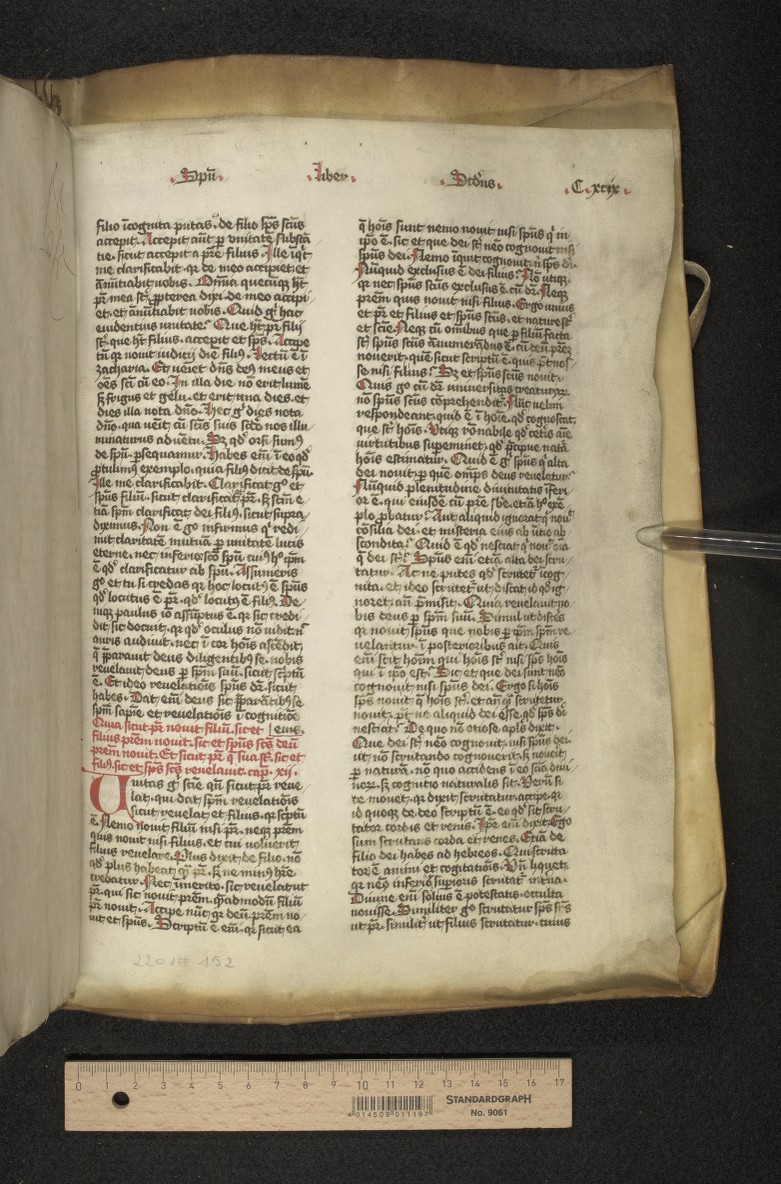 · Spū ·
· Liber ·
· Scd̄us ·
· C · xcix ·
filio īcognita putas. de filio sp̄s sc̄us
accepit. Accepit aūt p̱ vnitatē substā
tie. sicut accepit a pr̄e filius. Ille iq̄t
me clarificabit. qꝛ de meo accipiet et
ān̄ūtiabit vobis. Om̄ia quecūq̨ ht̄
pr̄ mea st̄. pp̄terea dixi. de meo accipi
et. et ān̄ūtiabit vobis. Quid gͦ hac
euidentius vnitate. Que ht̄ pr̄ filij
st̄. que ht̄ filius. accepit et sp̄s. Accipe
tū qꝛ nouit iudicij diē filiꝰ. Lectū ē ī
zacharia. Et veiet dn̄s deꝰ meus et
oēs sc̄i cū eo. In illa die nō erit lumē
sꝫ frigus et gelu. et erit vna dies. et
dies illa nota dn̄o. Hec gͦ dies nota
dn̄o. qua veīt cū sc̄is suis sc̄do nos illu
minaturus aduētu. Sꝫ qd̄ orsi sumꝰ
de sp̄u ꝑsequamur. Habes em̄ ī eo qd̄
ꝓtulimꝰ exemplo. quia filiꝰ dicit de sp̄u.
Ille me clarificabit. Clarificat gͦ et
sp̄us filiū. sicut clarificat pr̄. sꝫ sc̄m e
tiā sp̄m clarificat dei filiꝰ. sicut supra
diximus. Non ē gͦ infirmus qͥ redi
mit claritatē mutuā ꝑ vnitatē lucis
eterne. nec inferior sc̄o sp̄u. cuiꝰ hͦ ip̄m
ē qd̄ clarificatur ab sp̄u. Assumeris
gͦ et tu si credas qꝛ hoc locutꝰ ē sp̄us
qd̄ locutus ē pr̄. qd̄ locutꝰ ē filiꝰ. De
niqꝫ paulus iō assūptus ē. qꝛ sic credi
dit. sic docuit. qꝛ qd̄ oculus nō vidit nͨ
auris audiuit. nec ī cor hoīs ascēdit.
q̄ p̄parauit deus diligentibꝰ se. nobis
reuelauit deus ꝑ sp̄m suū. sicut sc̄ptū
ē. Et ideo reuelatiōis sp̄us dr̄. sicut
habes. Dat em̄ deus sic p̄parātibꝰ se
sp̄m sapīe et reuelatiōis ī cognitiōe
Quia sicut pr̄ nouit filiū. sic et | eius.
filius pr̄em nouit. sic et sp̄us sc̄s deū
pr̄em nouit. Et sicut pr̄ q̄ sua st̄. sic et
filiꝰ. sic et sp̄s sc̄s reuelauit. cap̄. xij.
Vnitas gͦ scīe qm̄ sicut pr̄ reue
lat. qui dat sp̄m reuelatiōis
sicut reuelat et filius. qꝛ sc̄ptū
ē. Nemo nouit filiū nisi pr̄. neqꝫ pr̄em
quis nouit nisi filius. et cui voluerit
filius reuelare. Plus dixit de filio. nō
qd̄ plus habeat qͣ pr̄. sꝫ ne minꝰ hr̄e
credatur. Nec īmerito. sic reuelatur
pr̄. qui sic nouit pr̄em. q̄admodū filiū
pr̄ nouit. Accipe nūc qꝛ deū pr̄em no
uit et sp̄us. Scriptū ē em̄. qꝛ sicut ea
q̄ hoīs sunt nemo nouit nisi sp̄us qͥ in
ip̄o ē. sic et que dei st̄ nēo cognouit nisi
sp̄us dei. Nemo iquit cognouit. nͥ sp̄s di.
Nūquid exclusius ē dei filius. Nō vtiqꝫ.
qꝛ nec sp̄us sc̄us exclusus ē. cū dr̄. Neqꝫ
pr̄em quis nouit nisi filius. Ergo vnius
et pr̄ et filius et sp̄us sc̄us. et nature st̄
et scīe. Neqꝫ cū omībus que ꝑ filiū facta
st̄ sp̄us sc̄us ānumerādus ē. cū deū pr̄ez
nouerit. quē sicut scriptū ē. quis pt̄ nos
se nisi filius. Sꝫ et sp̄us sc̄us nouit.
Quis gͦ cū dr̄ vniuersitas creaturaꝝ
nō sp̄us sc̄us cōprehendit. Nūc velim
respondeant. quid ē ī hoīe. qd̄ cognoscat.
que st̄ hoīs. Vtiqꝫ rōnabile qd̄ cetīs aīe
virtutibus supeminet. qd̄ p̄cipue natā
hoīs estimatur. Quid ē gͦ sp̄us qͥ alta
dei nouit. ꝑ quē om̄ps deus reuelatur.
Nūquid plenitudine diuinitatis īferi
or ē. qui eiusdē cū pr̄e sbe. etiā hͦ exē
plo ꝓbatur. Aut aliquid ignorat qͥ nouͭ
cōsilia dei. et misteria eius ab ītio ab
scondita. Quid ē qd̄ nesciat qͥ nouͭ oīa
q̄ dei st̄. Sp̄us em̄ etiā alta dei scru
tatur. Ac ne putes qd̄ scrutet̄ icog
nita. et ideo scrutet̄ vt discat id qd̄ ig
noret. an̄ p̄misit. Quia reuelauit no
bis deus ꝑ sp̄m suū. Simul vt discās
qꝛ nouit sp̄us que nobis ꝑ ip̄m sp̄m re
uelantur. ī posterioribus ait. Quis
em̄ scit hoīm qui hoīs st̄ nisi sp̄s hoīs
qui ī ip̄o est. Sic et que dei sunt nēo
cognouit nisi sp̄us dei. Ergo si hoīs
sp̄s nouit q̄ hoīs st̄. et anq̄ scrutetur
nouit. pt̄ ne aliquid dei esse. qd̄ sp̄s di
nesciat. De quo nō otiose apl̄s dixit.
Que dei st̄ nēo cognouit. nisi sp̄us dei.
vt nō scrutando cognouerit. sꝫ nouerit
ꝑ naturā. nō quo accidens ī eo scīa diui
noꝝ. sꝫ cognitio naturalis sit. Verū si
te mouet. qꝛ dixit scrutatur. accipe. qꝛ
id quoqꝫ de deo scriptū ē. eo qd̄ sit scru
tator cordis et renis. Ip̄e em̄ dixit. Ego
sum scrutans corda et renes. Etiā de
filio dei habes ad hebreos. Qui scruta
tor ē animi et cogitatiōis. Vn̄ liquet.
qꝛ nēo inferiͦ supioris scrutat̄ intīa.
Diuine em̄ soliꝰ ē potestatis. occulta
nouisse. Similiter gͦ scrutatur sp̄s sc̄s
vt pr̄. similit̄ vt filius scrutatur. cuius
2201# 152
0 1 2 3 4 5 6 7 8 9 10 11 12 13 14 15 16 17
4 014509 011197
STANDARDGRAPH
No. 9061